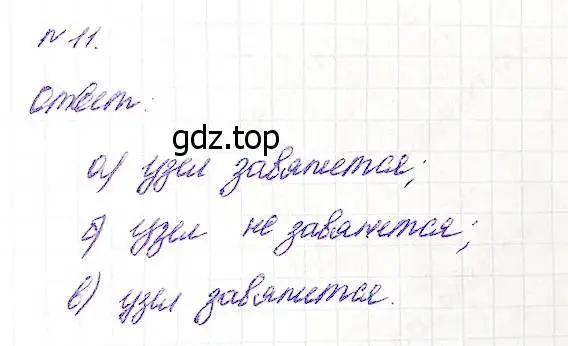 № 11.
Ответ:
gdz.top
а) узел завяжется;
б) узел не завяжется;
в) узел завяжется.